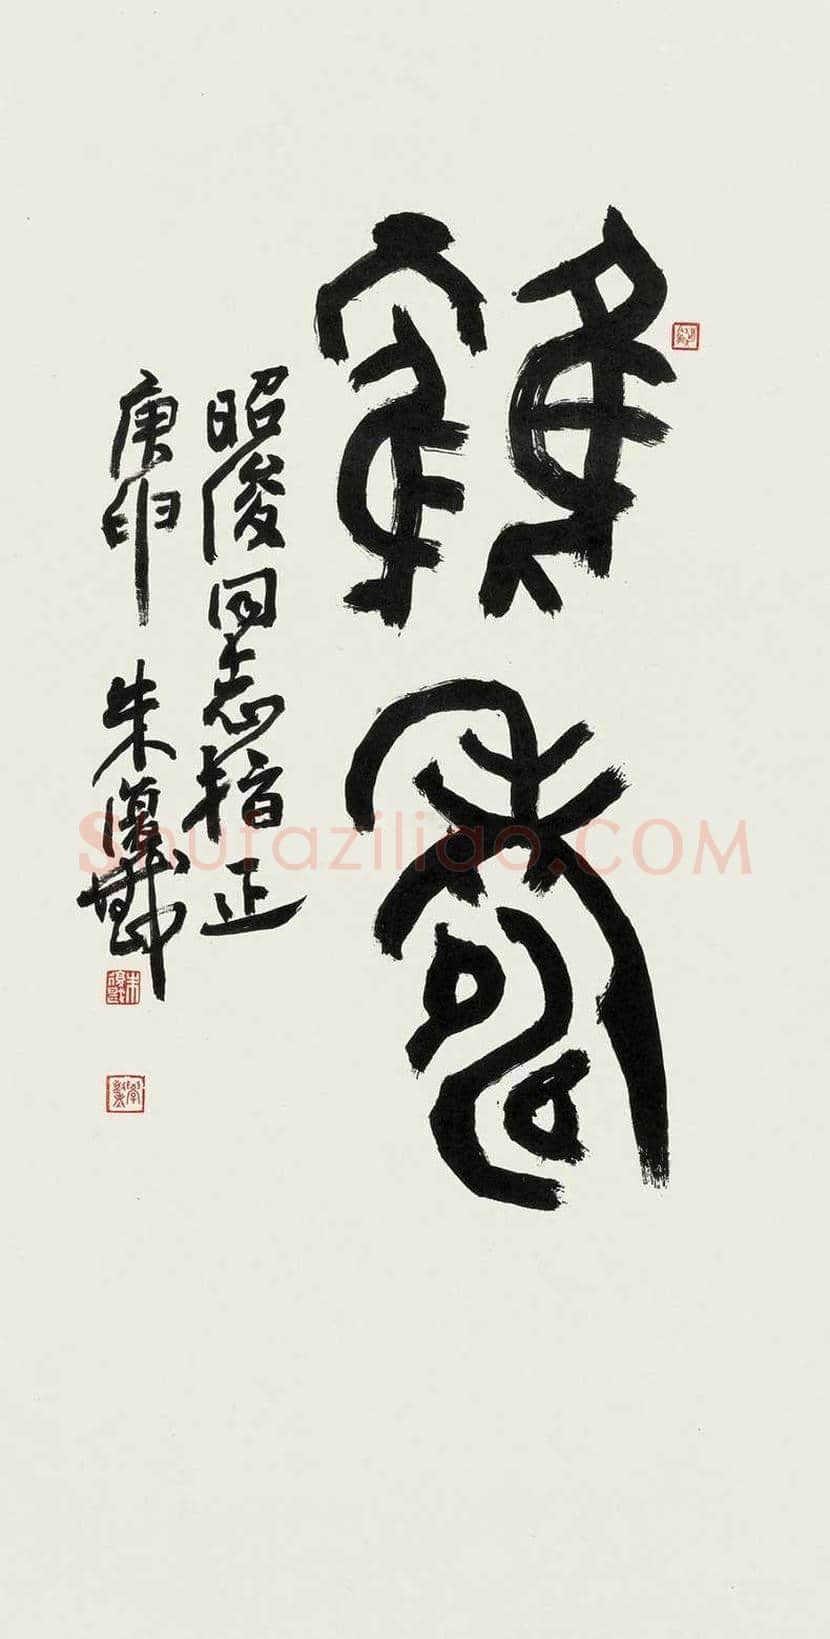 鶴壽
昭俊同志指正
庚申 朱復戡
朱復戡
Shufaziliao.COM